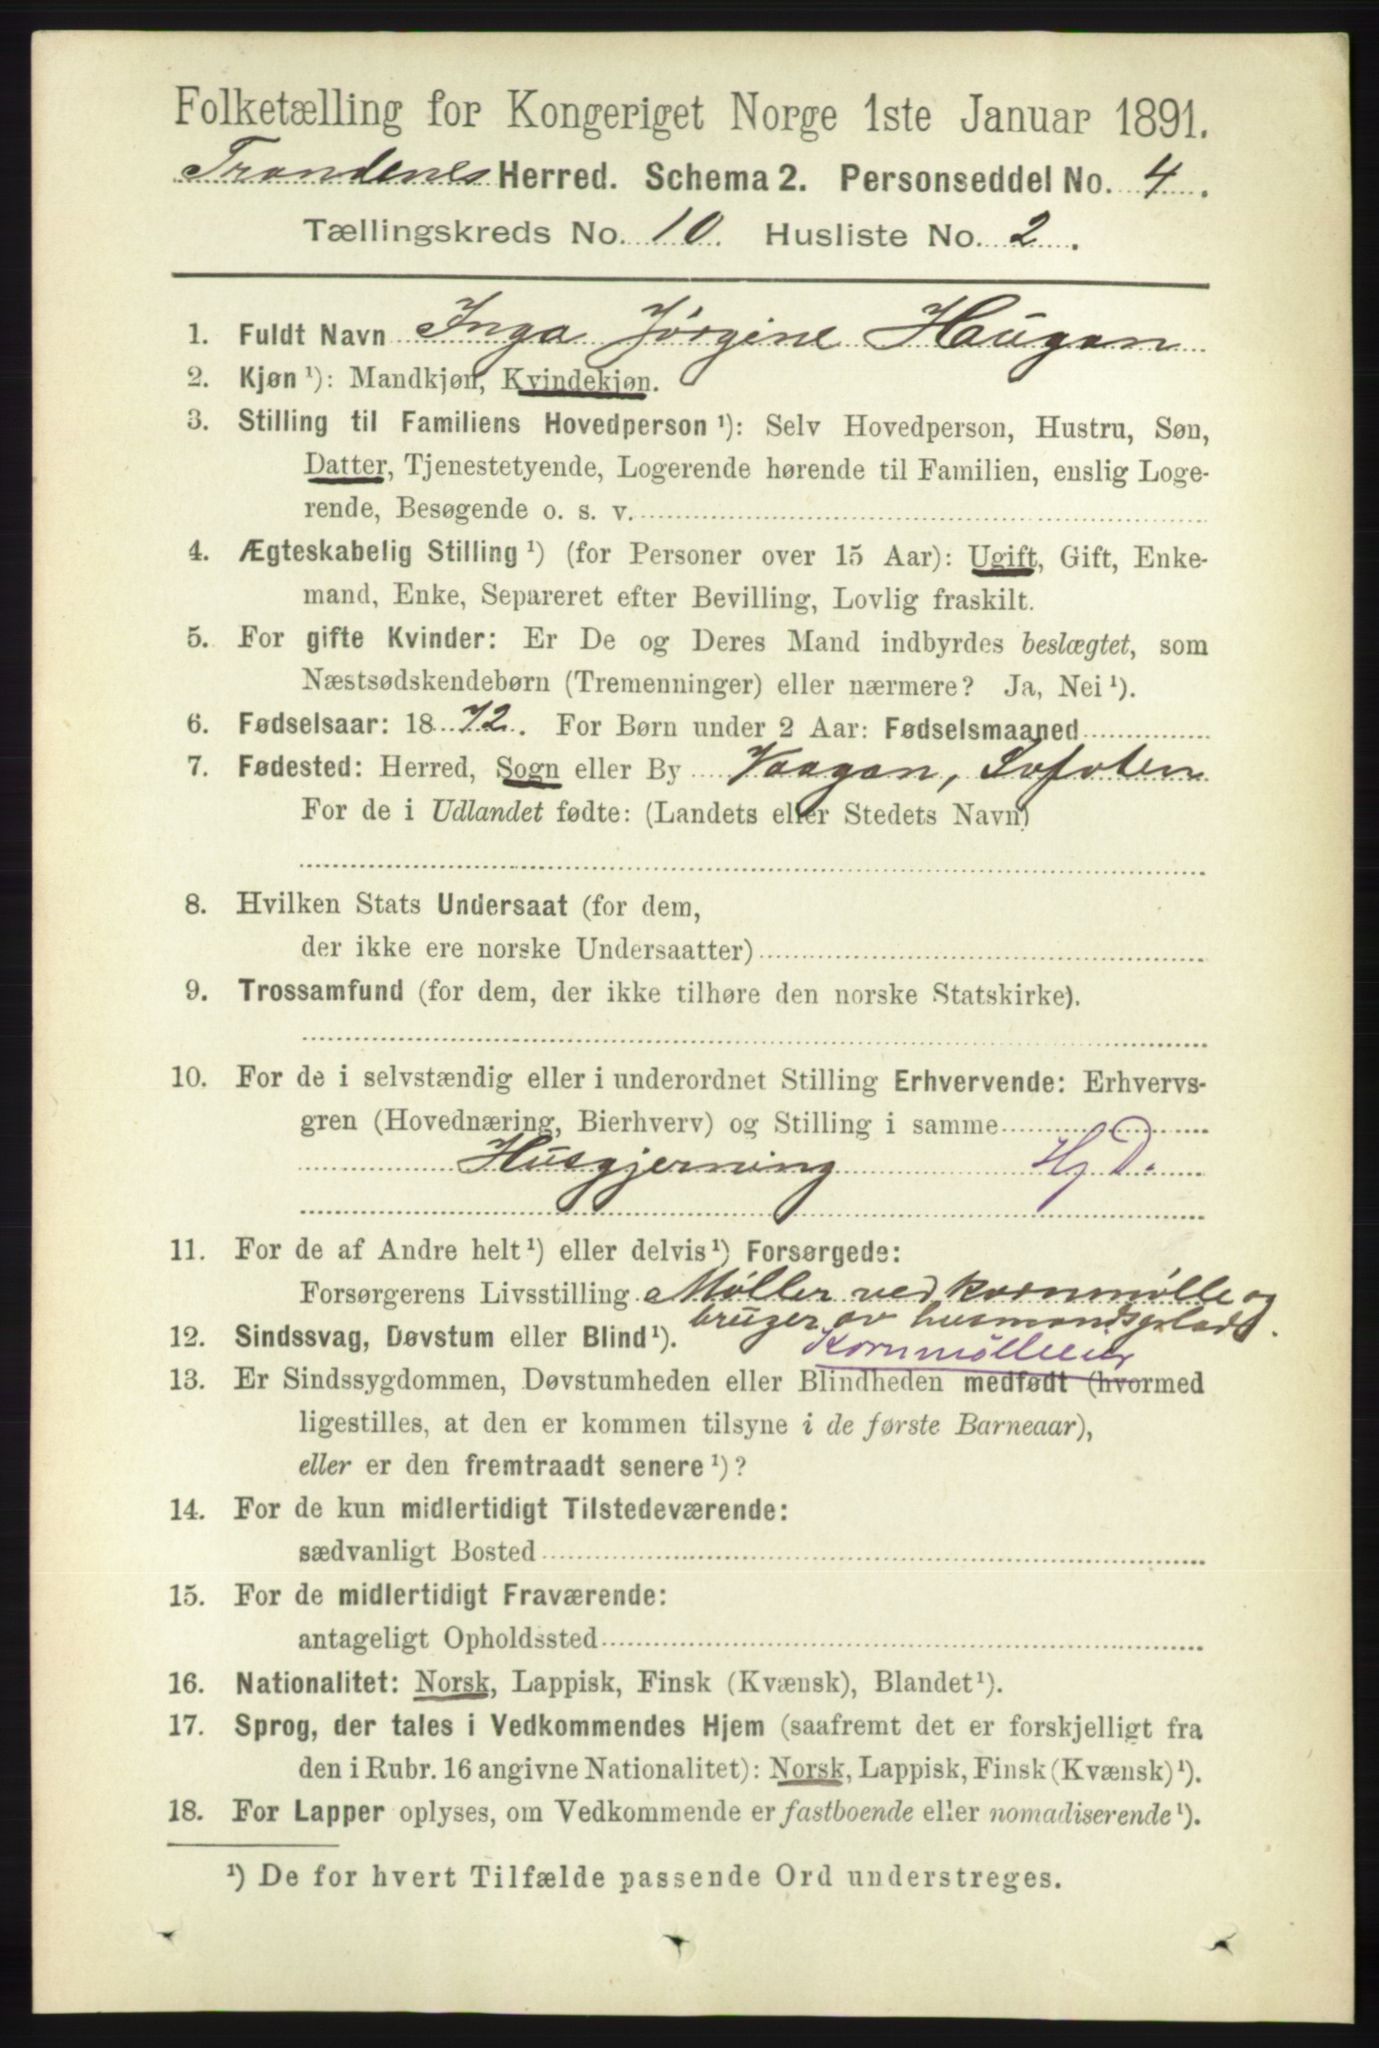 Folketælling for Kongeriget Norge 1ste Januar 1891.
Trondenes Herred. Schema 2. Personseddel No. 4.
Tællingskreds No. 10. Husliste No. 2.
1. Fuldt Navn Inga Jørgine Haugan
2. Kjøn ¹): Mandkjøn, Kvindekjøn.
3. Stilling til Familiens Hovedperson ¹): Selv Hovedperson, Hustru, Søn,
Datter, Tjenestetyende, Logerende hørende til Familien, enslig Loge-
rende, Besøgende o. s. v.
4. Ægteskabelig Stilling ¹) (for Personer over 15 Aar): Ugift, Gift, Enke-
mand, Enke, Separeret efter Bevilling, Lovlig fraskilt.
5. For gifte Kvinder: Er De og Deres Mand indbyrdes beslægtet, som
Næstsødskendebørn (Tremenninger) eller nærmere? Ja, Nei ¹).
6. Fødselsaar: 1872. For Børn under 2 Aar: Fødselsmaaned
7. Fødested: Herred, Sogn eller By Vaagan, Lofoten
For de i Udlandet fødte: (Landets eller Stedets Navn)
8. Hvilken Stats Undersaat (for dem,
der ikke ere norske Undersaatter)
9. Trossamfund (for dem, der ikke tilhøre den norske Statskirke).
10. For de i selvstændig eller i underordnet Stilling Erhvervende: Erhvervs-
gren (Hovednæring, Bierhverv) og Stilling i samme
Husgjerning Hj D.
11. For de af Andre helt ¹) eller delvis ¹) Forsørgede:
Forsørgerens Livsstilling Møller ved kornmølle og
bruger av husmandsplads.
12. Sindssvag, Døvstum eller Blind ¹).
Kornmølleeier
13. Er Sindssygdommen, Døvstumheden eller Blindheden medfødt (hvormed
ligestilles, at den er kommen tilsyne i de første Barneaar),
eller er den fremtraadt senere ¹)?
14. For de kun midlertidigt Tilstedeværende:
sædvanligt Bosted
15. For de midlertidigt Fraværende:
antageligt Opholdssted
16. Nationalitet: Norsk, Lappisk, Finsk (Kvænsk), Blandet ¹).
17. Sprog, der tales i Vedkommendes Hjem (saafremt det er forskjelligt fra
den i Rubr. 16 angivne Nationalitet): Norsk, Lappisk, Finsk (Kvænsk) ¹).
18. For Lapper oplyses, om Vedkommende er fastboende eller nomadiserende ¹).
¹) De for hvert Tilfælde passende Ord understreges.